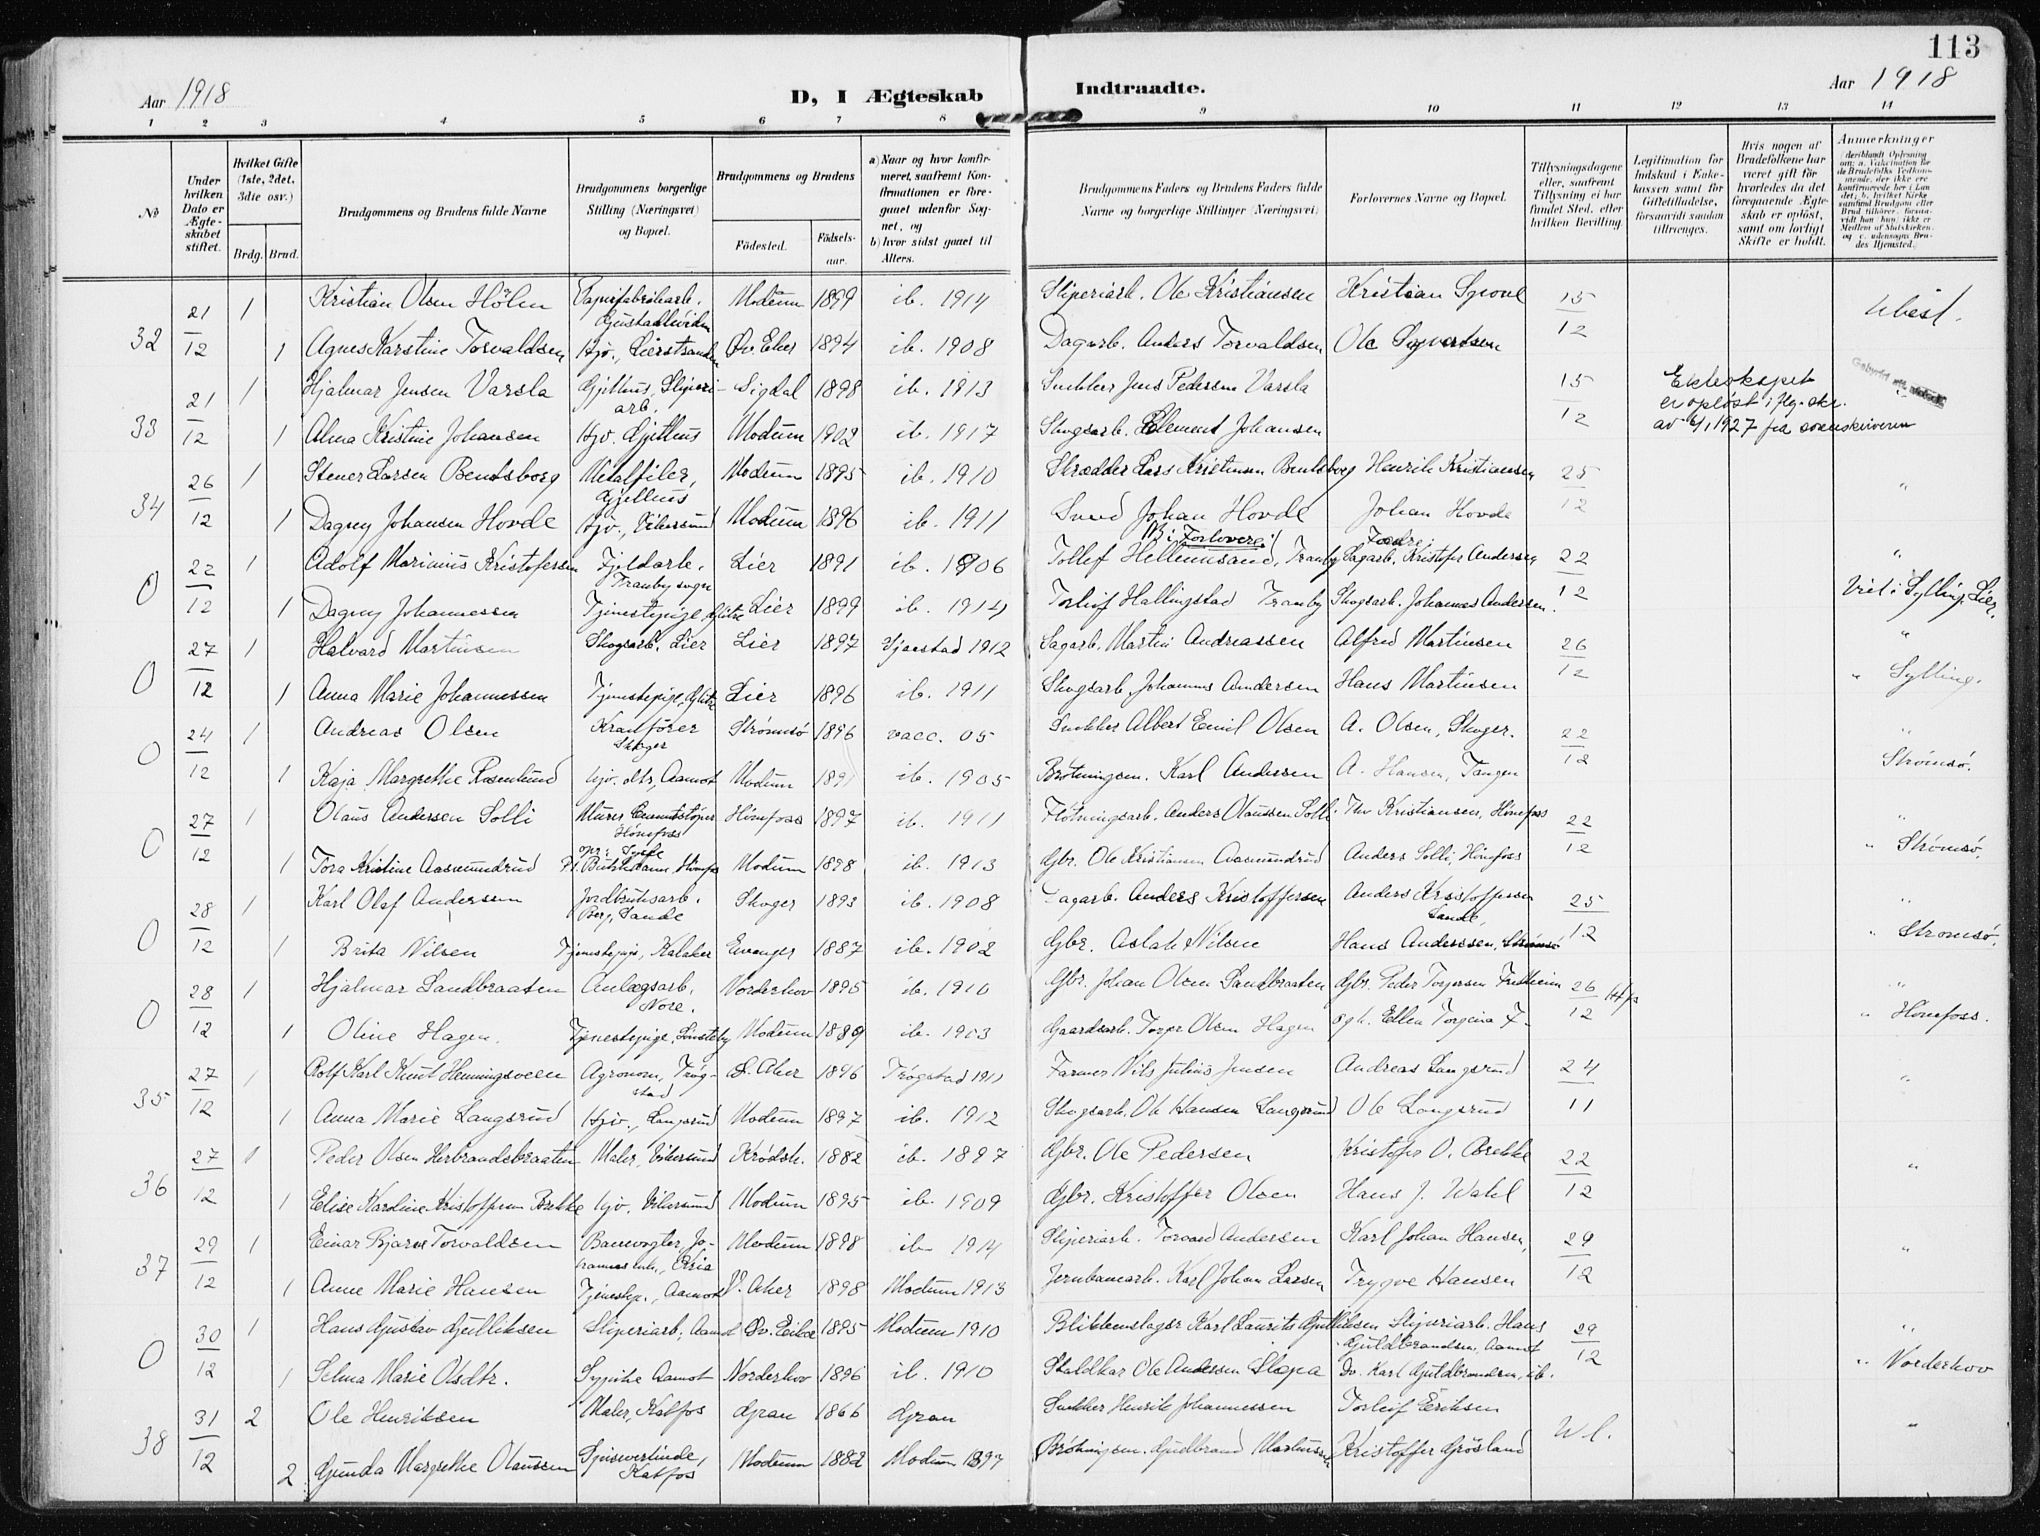 113
Aar 1918
D, I Ægteskab Indtraadte.
Aar 1918
1 2 3 4 5 6 7 8 9 10 11 12 13 14
No
Under hvilken Dato er Ægteskabet stiftet.
Hvilket Gifte (1ste, 2det, 3die osv.)
Brdg. Brud.
Brudgommens og Brudens fulde Navne
Brudgommens borgerlige Stilling (Næringsvei) og Bopæl.
Brudgommens og Brudens
Födested. Födselsaar.
a) Naar og hvor konfirmeret, saafremt Konfirmationen er foregaaet udenfor Sognet, og
b) hvor sidst gaaet til Alters.
Brudgommens Faders og Brudens Faders fulde Navne og borgerlige Stillinger (Næringsvei)
Forlovernes Navne og Bopæl.
Tillysningsdagene eller, saafremt Tillysning ei har fundet Sted, efter hvilken Bevilling.
Legitimation for Indskud i Enkekassen samt for Giftetilladelse, forsaavidt saadan tiltrænges.
Hvis nogen af Brudefolkene har været gift för hvorledes da det foregaaende Ægteskab er oplöst, samt om lovligt Skifte er holdt.
Anmerkninger
32 21/12 1 Kristian Olsen Hölen Papirfabrikarb. Modum 1899 ib. 1914 Sliperiarb. Ole Kristiansen Kristian 15/12 ubest.
1 Agnes Karstine Torvaldsen Hjv., Lierstranden Öv. Eker 1894 ib. 1908 Dagarb. Anders Torvaldsen Ole Syvertsen
33 21/12 1 Hjalmar Jensen Varsla Gjethus, Sliperiarb. Sigdal 1898 ib. 1913 Snekker Jens Pedersen Varsla 15/12 Ekteskapet er opløst i flg. skr.
1 Alma Kristine Johansen Hjv. Gjethus Modum 1902 ib. 1917 Skogsarb. Klement Johansen av 1927 fra sorenskriveren
34 26/12 1 Stener Larsen Bentsborg Metalfiler, Gjethus Modum 1895 ib. 1910 Skrædder Lars Kristensen Bentsborg Henrik Kristiansen 25/12 "
1 Dagny Johansen Hovde Hjv., Vikersund Modum 1896 ib. 1911 Smed Johan Hovde Johan Hovde
NB: Forlovere: Fædre:
0 22/12 1 Adolf Marinius Kristofersen Fjeldarb. Tranby sogn Lier 1891 ib. 1906 Tollef Hellumsand, Tranby Sagarb. Kristofer Andersen 22/12 "
1 Dagny Johannessen Tjenestepige, Lier 1899 ib. 1914 Torleif Hallingstad Tranby Skogsarb. Johannes Andersen. Viet i Sylling, Lier.
0 27/12 1 Halvard Martinsen Skogsarb. Lier Lier 1897 Sjaastad 1912 Sagarb. Martin Andreassen Alfred Martinsen 26/12 "
1 Anna Marie Johannessen Tjenestepige, Lier 1896 ib. 1911 Skogsarb. Johannes Andersen Hans Martinsen " Sylling.
0 24/12 1 Andreas Olsen Kranförer Skoger Strømsö 1896 vacc. 05 Snekker Albert Emil Olsen A. Olsen, Skoger. 22/12 "
1 Kaja Margrethe Rosenlund Hjv. Aamot Modum 1891 ib. 1905 Brötningsm. Karl Andersen A. Hansen, Tangen Strömsö.
0 27/12 1 Olaus Andersen Solli Murer Cementstöper Hönefoss Hönefoss 1897 ib. 1911 Flötningsarb. Anders Olaussen Solli. Thv Kristiansen, Hönefoss 22/12 "
1 Tora Kristine Aasmundrud Modum 1898 ib. 1913 Gbr. Ole Kristiansen Aasmundrud Anders Solli, Hönefoss " Strömsö.
0 28/12 1 Karl Olaf Andersen Jordbruksarb. Berg, Sande Skoger 1893 ib. 1908 Dagarb. Anders Kristoffersen Anders Kristoffersen Sande, 25/12 "
1 Brita Nilsen Tjenestepige, Evanger 1887 ib. 1902 Gbr. Aslak Nilsen Hans Anderssen, Strömsö " Strömsö.
0 28/12 1 Hjalmar Sandbraaten Anlægsarb. Nore. Norderhov 1895 ib. 1910 Gbr. Johan Olsen Sandbraaten Gbr. Peder Torgersen 26/12 "
1 Oline Hagen. Tjenestepige, Modum 1889 ib. 1903 Gaardsarb. Olsen Hagen og h. Ellen Torgina F. " Hönefoss.
35 27/12 1 Rolf Karl Knut Henningsveen Agronom, Trögstad Ö. Aker 1896 Trögstad 1911 Farmer Nils Julius Jensen Andreas Langsrud 24/11 "
1 Anna Marie Langsrud Hjv., Langsrud Modum 1897 ib. 1912 Skogsarb. Ole Hansen Langsrud Ole Langsrud
36 27/12 1 Peder Olsen Herbrandsbraaten Maler, Vikersund Krödsh. 1882 ib. 1897 Gbr. Ole Pedersen Kristofer O. Brekke 22/12 "
1 Elise Karoline Kristoffersen Brekke Hjv. Vikersund Modum 1895 ib. 1909 Gbr. Kristoffer Olsen Hans J. Wahl
37 29/12 1 Einar Bjarne Torvaldsen Banevogter, Modum 1898 ib. 1914 Sliperiarb. Torvald Andersen Karl Johan Hansen, 29/12 "
1 Anne Marie Hansen Tjenestep., Aamot V. Aker 1898 Modum 1913 Jernbanearb. Karl Johan Larsen Trygve Hansen
0 30/12 1 Hans Gustav Gulliksen Sliperiarb., Aamot Öv. Eiker 1895 Modum 1910 Blikkenslager Karl Laurits Gulliksen Sliperiarb. Hans Guldbrandsen, Aamot 29/12 "
1 Selma Marie Olsdtr. Sypike Aamot Norderhov 1896 ib. 1910 Staldkar Ole Andersen Slopa Do. Karl Guldbrandsen, ib. " Norderhov
38 31/12 2 Ole Henriksen Maler, Katfos Gran 1866 Gran Snekker Henrik Johannessen Torleif Eriksen W l. "
2 Gunda Margrethe Olaussen Spiseværtinde, Katfos Modum 1882 Modum 1897 Brötningsm. Gudbrand Kristoffer Grösland